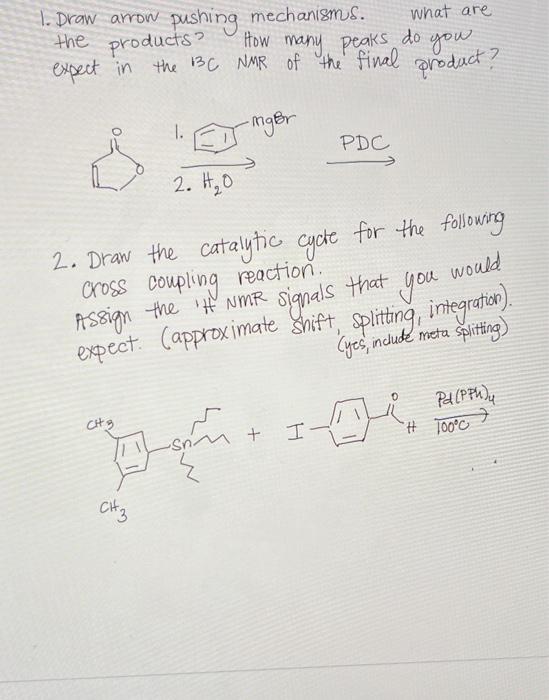 1. Draw arrow pushing mechanisms. what are
the products? How many peaks do you
expect in the 13C NMR of the final product?
O
O
1. -mgBr
2. H2O
PDC
2. Draw the catalytic cycle for the following
cross coupling reaction.
Assign the 1H NMR signals that you would
expect. (approximate shift, splitting, integration).
(yes, include meta splitting)
CH3
-Sn
CH3
+
I
O
H
Pd(PPh)4
100°C